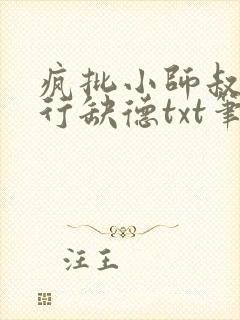 疯批小师叔
行缺德txt笔
汪王